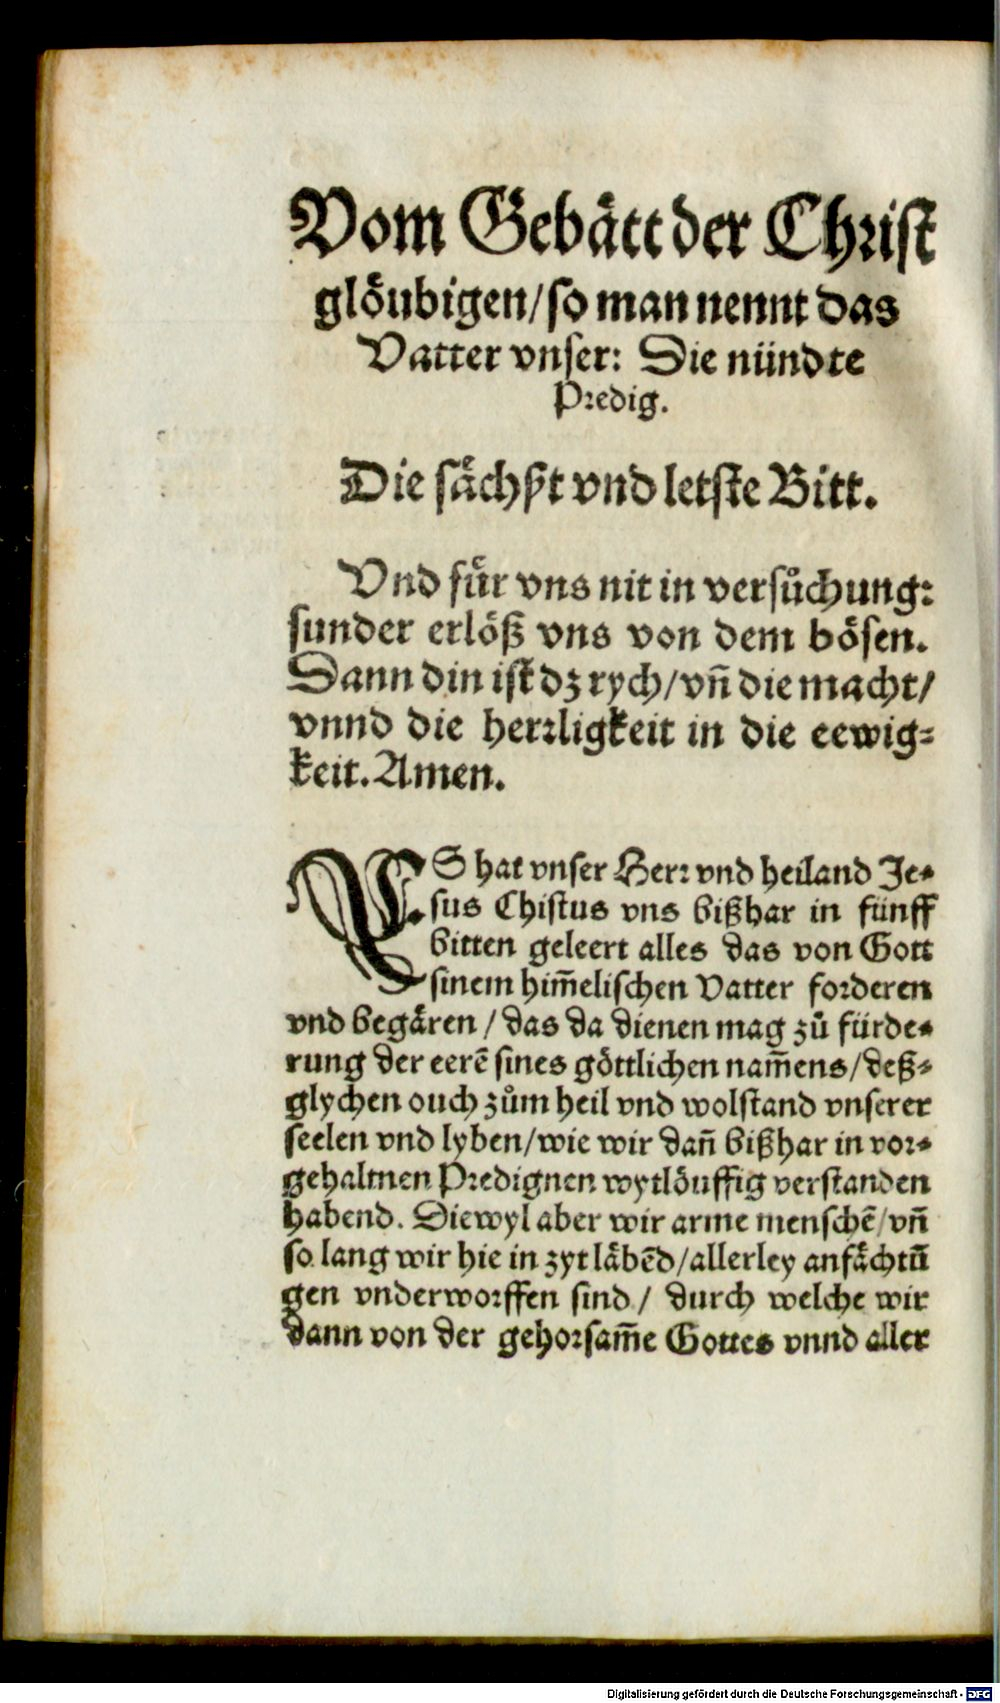 Vom Gebaͤtt der Christ
gloͤubigen/so man nennt das
Vatter vnser: Die nündte
Predig.
Die saͤchßt vnd letste Bitt.
Vnd fuͤr vns nit in versuͦchung:
sunder erloͤß vns von dem boͤsen.
Dann din ist dz rych/vñ die macht/
vnnd die herrligkeit in die eewig⸗
keit. Amen.
ES hat vnser Herr vnd heiland Je⸗
sus Chistus vns bißhar in fünff
bitten geleert alles das von Gott
sinem him̃elischen Vatter forderen
vnd begaͤren / das da dienen mag zuͦ fürde⸗
rung der eerẽ sines goͤttlichen nam̃ens/deß⸗
glychen ouch zuͦm heil vnd wolstand vnserer
seelen vnd lyben/wie wir dañ bißhar in vor⸗
gehaltnen Predignen wytloͤuffig verstanden
habend. Diewyl aber wir arme menschẽ/vñ
so lang wir hie in zyt laͤbẽd/allerley anfaͤchtũ
gen vnderworffen sind/ durch welche wir
dann von der gehorsam̃e Gottes vnnd aller
Digitalisierung gefördert durch die Deutsche Forschungsgemeinschaft - DFG